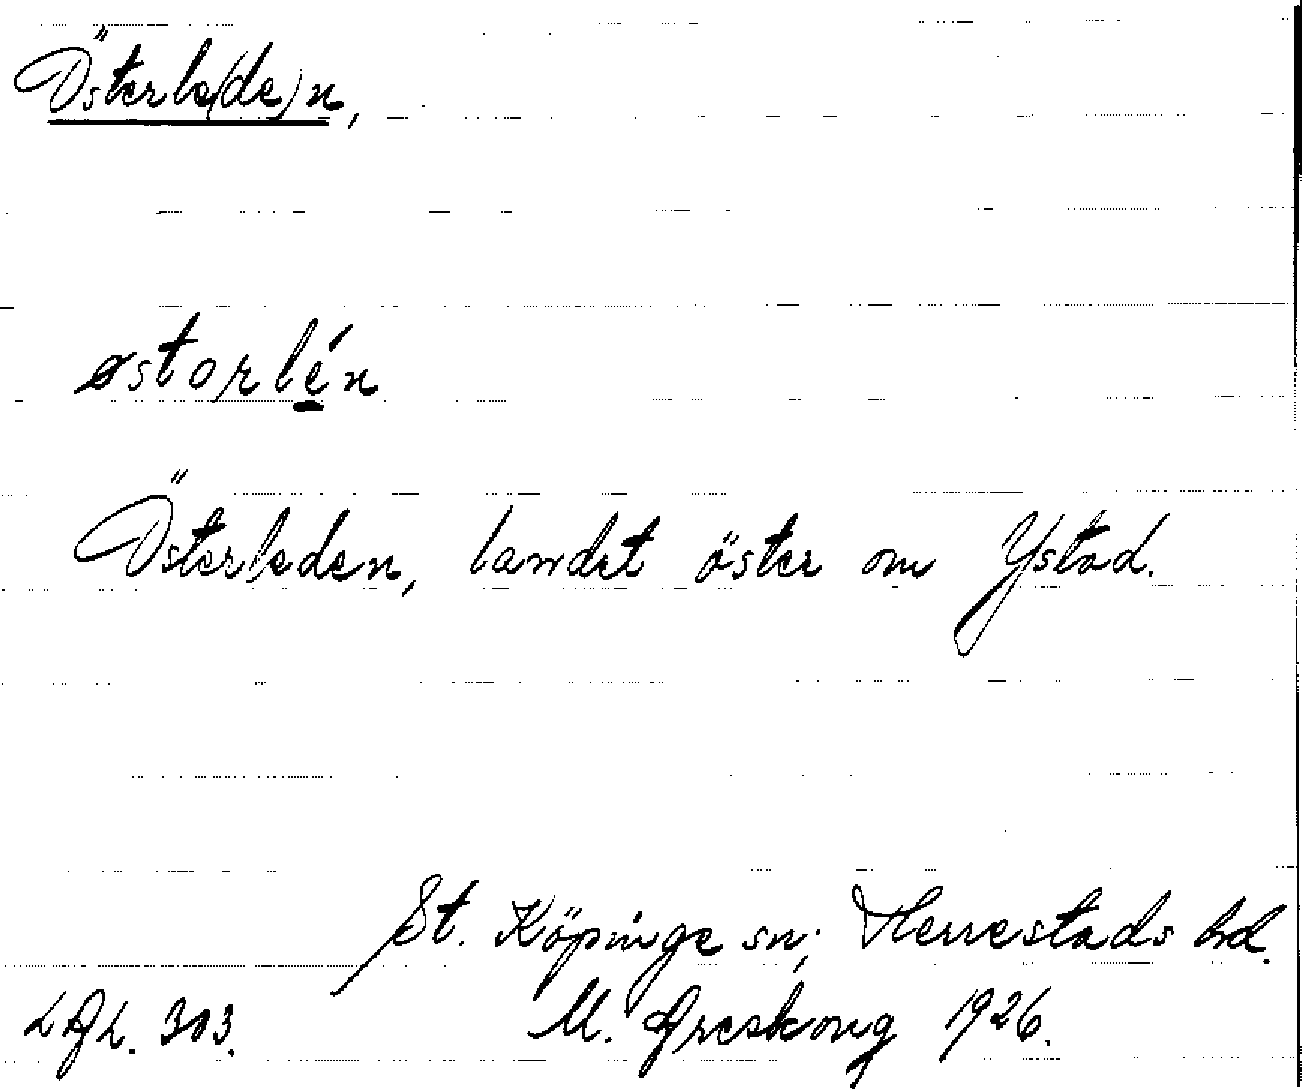 Österle(de)n,
østorlén
Österleden, landet öster om Ystad.
St. Köpinge sn; Herrestads hd.
LAL. 303. M. Areskoug 1926.